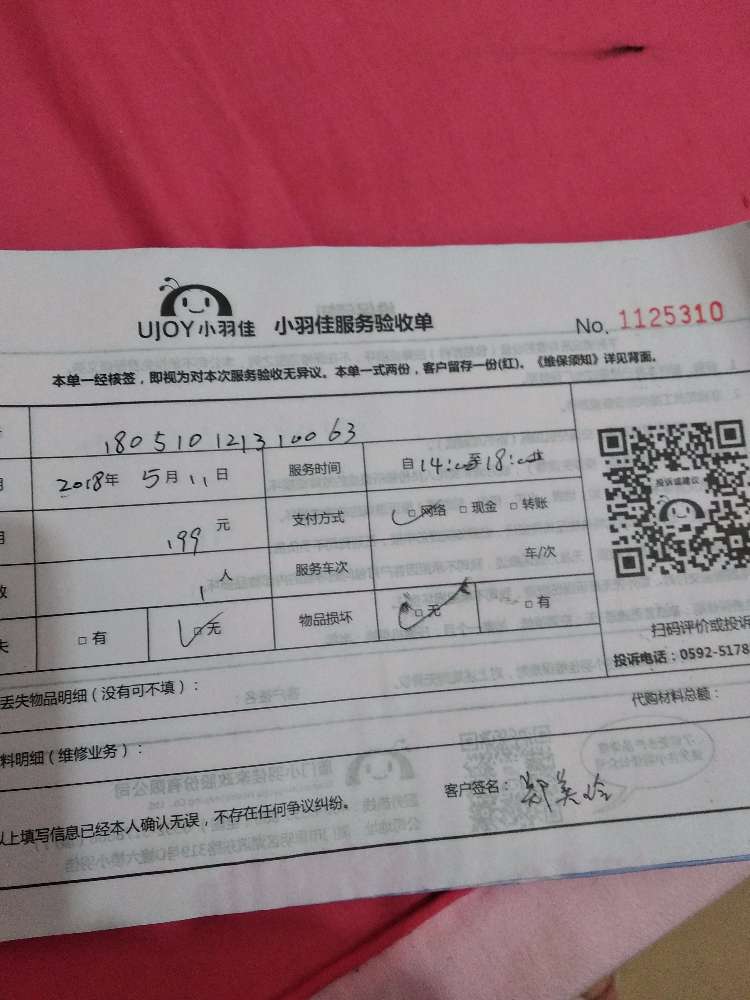 UJOY小羽佳 小羽佳服务验收单 No. 1125310
本单一经核签，即视为对本次服务验收无异议。本单一式两份，客户留存一份(红)。《维保须知》详见背面。
180510121310063
2018年 5月 11日 服务时间 自14:00至18:00
199 元 支付方式 □网络 □现金 □转账
1 人 服务车次 车/次
□有 □无 物品损坏 □无 □有
投诉或建议
扫码评价或投诉
投诉电话：0592-5178
丢失物品明细（没有可不填）：
代购材料总额：
料明细（维修业务）：
客户签名：郑美玲
以上填写信息已经本人确认无误，不存在任何争议纠纷。